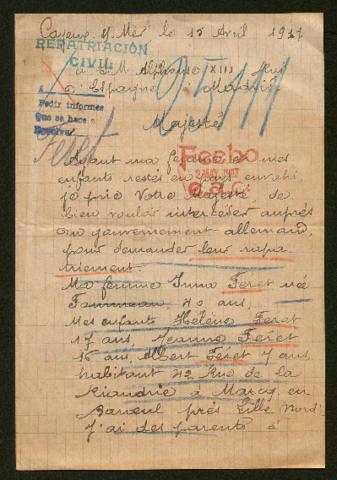 Cayeux s/ Mer le 15 Avril 1917
REPATRIACIÓN
CIVIL
à S.M. Alphonse XIII Roi
d'Espagne Madrid
Pedir informes
Que se hace a
Majesté
Feret
Fecho
Ayant ma femme et mes
enfants restés en pays envahi
je prie Votre Majesté de
bien vouloir intercéder auprès
du gouvernement allemand,
pour demander leur rapa
triement.
Ma femme Irma Feret née
40 ans,
Mes enfants Hélène Feret
17 ans, Jeanne Feret
16 ans, Albert Feret 7 ans,
habitant 42 Rue de la
à Marcq en
Baroeul près Lille Nord.
J'ai des parents à